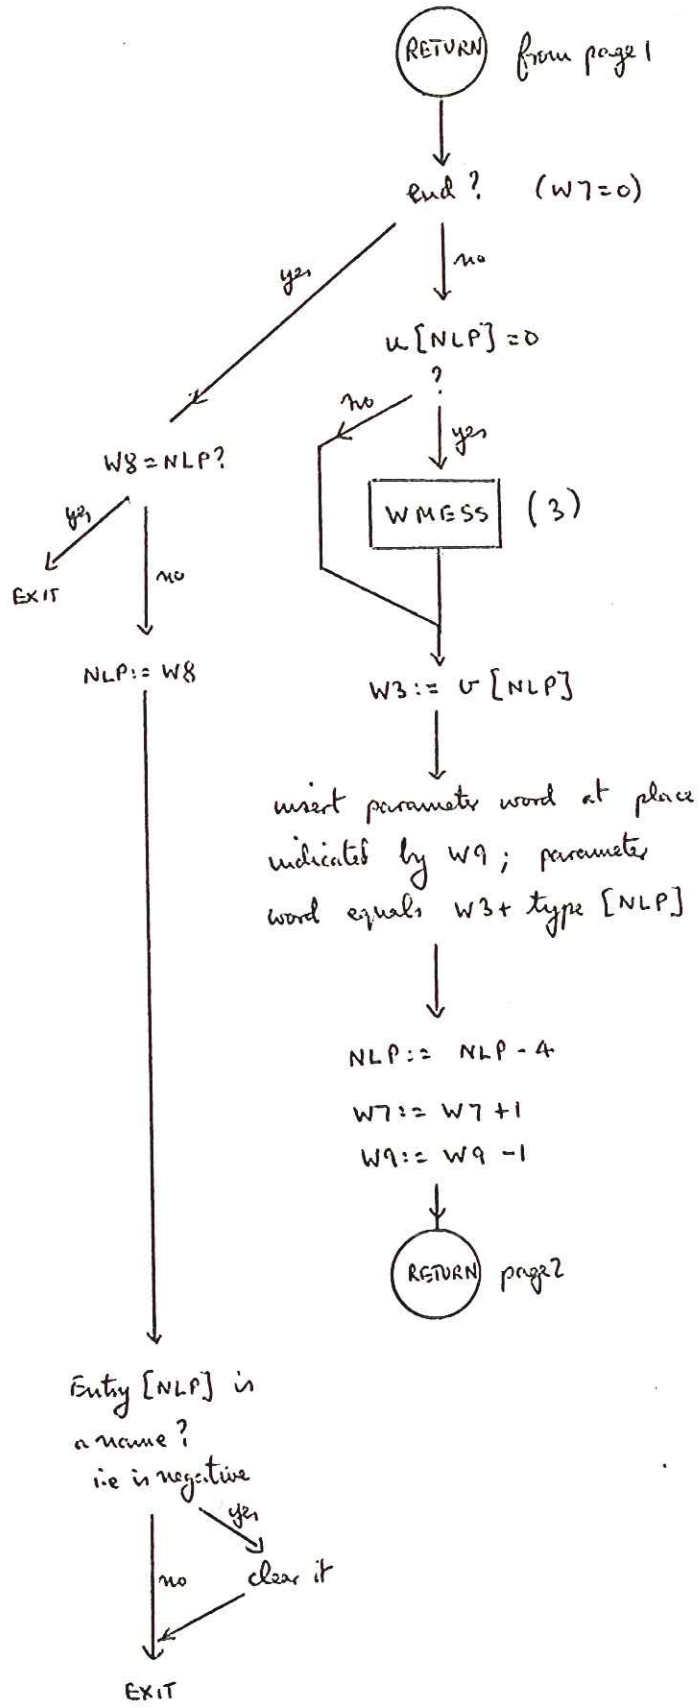 RETURN from page 1
end? (W7=0)
yes
no
u[NLP]=0
?
no
yes
W8=NLP?
WMESS (3)
yes
no
EXIT
NLP:=W8
W3:= v[NLP]
insert parameter word at place
indicated by W9; parameter
word equals W3+ type [NLP]
NLP:= NLP-4
W7:= W7+1
W9:= W9-1
RETURN page2
Entry [NLP] is
a name?
i.e is negative
yes
no
clear it
EXIT